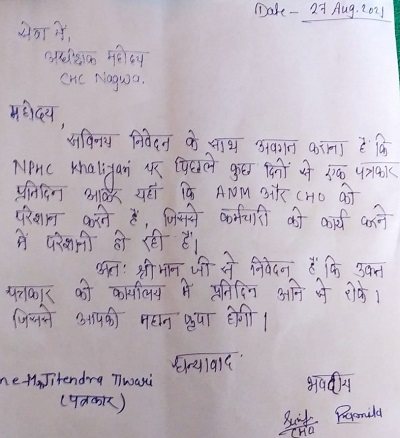 Date - 27 Aug. 2021
सेवा में,
अधीक्षक महोदय
CHC Nagwa.
महोदय,
सविनय निवेदन के साथ अवगत कराना है कि
NPHC Khaliyari पर पिछले कुछ दिनों से एक पत्रकार
प्रतिदिन आकर यहाँ कि ANM और CHO को
परेशान करते हैं, जिससे कर्मचारी को कार्य करने
में परेशानी हो रही हैं।
अतः श्रीमान जी से निवेदन हैं कि उक्त
पत्रकार को कार्यालय में प्रतिदिन आने से रोके।
जिससे आपकी महान कृपा होगी।
धन्यवाद
Jitendra Tiwari
(पत्रकार)
भवदीय
CHO Pramila